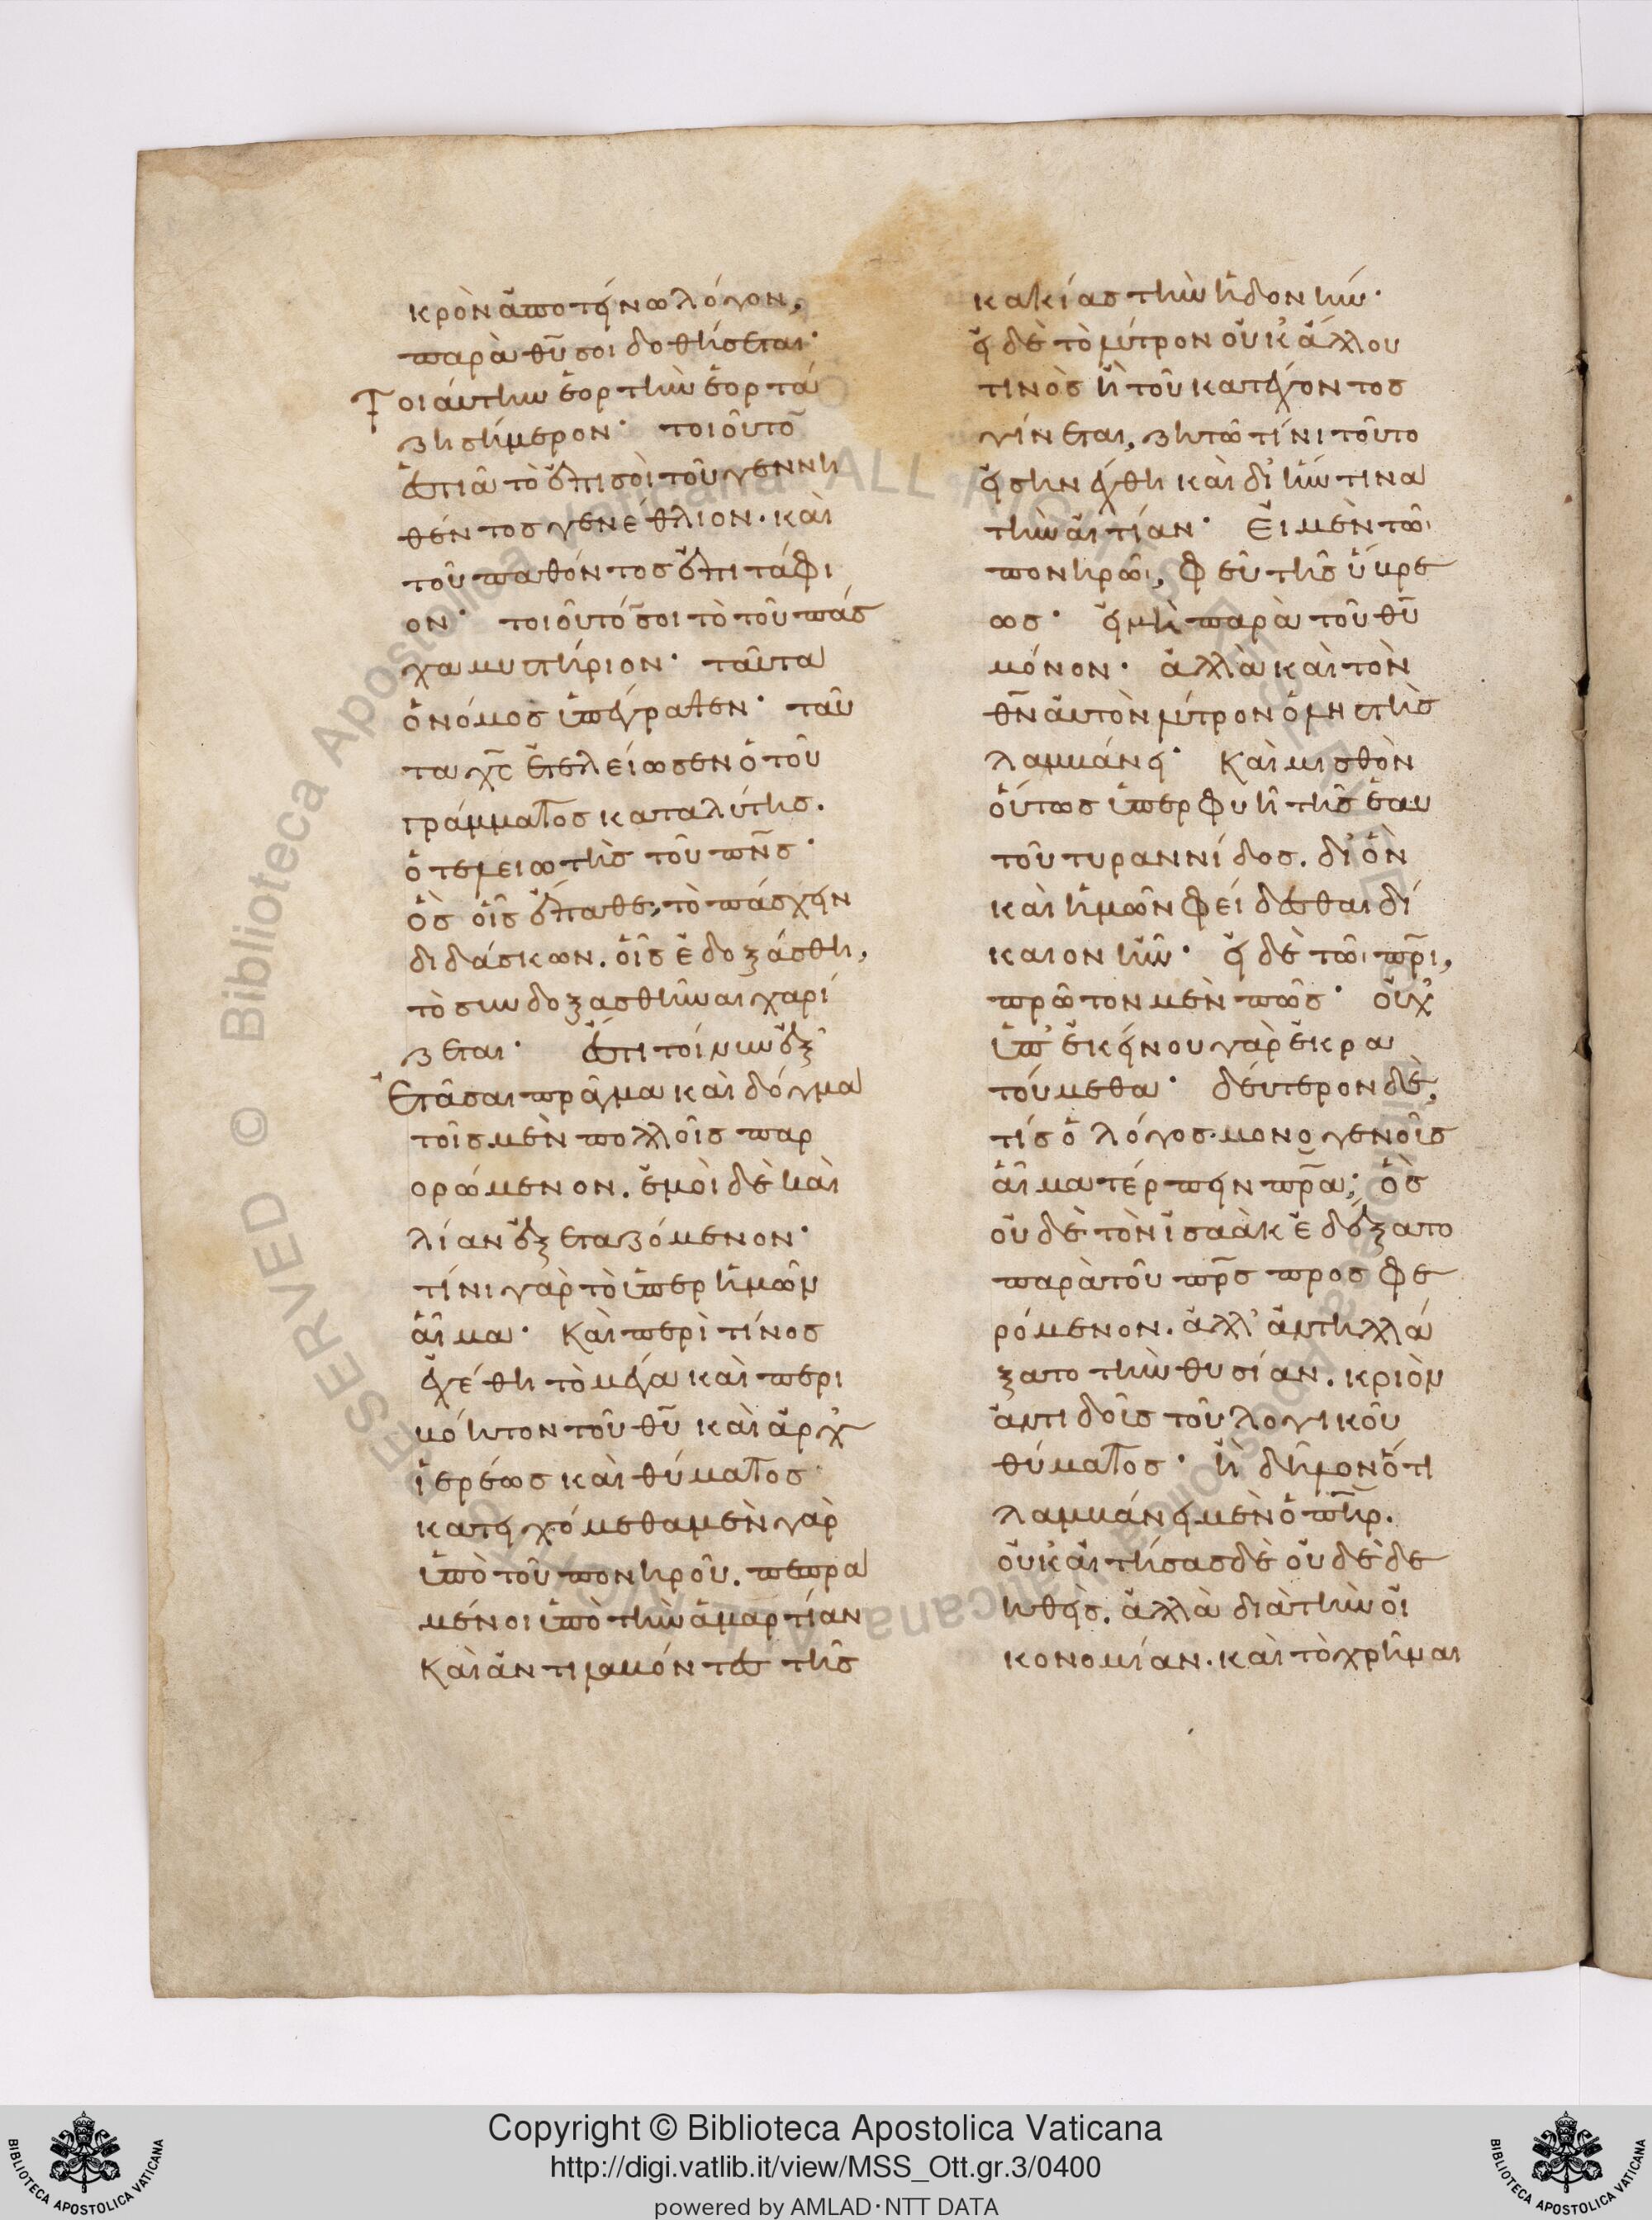 κρὸν ἀποτείνω λόγον,
παρὰ θυ̅ σοι δοθήσεται·
Τοιαύτην ἑορτὴν ἑορτά
ζῃ σήμερον· τοιοῦτό̅
ἑστιᾶ τὸ ἐπὶ σοὶ τοῦ γεννη
θέντος γενέθλιον. καὶ
τοῦ παθόντος ἐπιτάφι
ον· τοιοῦτό σοι τὸ τοῦ πάσ
χα μυστήριον· ταῦτα
ὁ νόμος ὑπέγραψεν· ταῦ
τα χς̅ ἐτελείωσεν ὁ τοῦ
γράμματος καταλύτης.
ὁ τεμειωτὴς τοῦ πνς̅·
ὃς οἷς ἔπαθε, τὸ πάσχειν
διδάσκων. οἷς ἐδοξάσθη,
τὸ συνδοξασθῆναι χαρί
ζεται· ἔστι τοίνυν ἐξ
ετᾶσαι πρᾶγμα καὶ δόγμα
τοῖς μὲν πολλοῖς παρ
ορώμενον. ἐμοὶ δὲ καὶ
λίαν ἐξεταζόμενον·
τίνι γὰρ τὸ ὑπὲρ ἡμῶν
αἷμα· καὶ περὶ τίνος
ἐχέθη τὸ μέγα καὶ περι
βόητον τοῦ θυ̅ καὶ ἀρχ
ιερέως καὶ θύματος·
κατειχόμεθα μὲν γὰρ
ὑπὸ τοῦ πονηροῦ. πεπρα
μένοι ὑπὸ τὴν ἁμαρτίαν
καὶ ἀντιλαβόντες τῆς
κακίας τὴν ἡδονήν·
εἰ δὲ τὸ λύτρον οὐκ ἄλλου
τινὸς ἢ τοῦ κατέχοντος
γίνεται, ζητῶ τίνι τοῦτο
εἰσηνέχθη καὶ δι' ἥντινα
τὴν αἰτίαν· Εἰ μὲν τῶι
πονηρῶι, φεῦ τῆς ὕβρε
ως· εἰ μὴ παρὰ τοῦ θυ̅
μόνον· ἀλλὰ καὶ τὸν
θν̅ αὐτὸν λύτρον ὁ ληστὴς
λαμβάνει· καὶ μισθὸν
οὕτως ὑπερφυῆ τῆς ἑαυ
τοῦ τυραννίδος. δι' ὃν
καὶ ἡμῶν φείδεσθαι δί
καιον ἦν· εἰ δὲ τῶι πρι̅,
πρῶτον μὲν πῶς· οὐχ
ὑπ' ἐκείνου γὰρ ἐκρα
τούμεθα· δεύτερον δὲ,
τίς ὁ λόγος. μονογενοῦς
αἷμα τέρπειν πρα̅; ὃς
οὐδὲ τὸν ἰσαὰκ ἐδέξατο
παρὰ τοῦ πρς̅ προσφε
ρόμενον. ἀλλ' ἀντηλλά
ξατο τὴν θυσίαν. κριὸν
ἀντιδοὶς τοῦ λογικοῦ
θύματος· ἢ δῆλον ὅτι
λαμβάνει μὲν ὁ πηρ̅.
οὐκ αἰτήσας δὲ οὐδὲ δε
ηθεὶς. ἀλλὰ διὰ τὴν οἰ
κονομίαν. καὶ τὸ χρῆναι
Copyright © Biblioteca Apostolica Vaticana
http://digi.vatlib.it/view/MSS_Ott.gr.3/0400
powered by AMLAD·NTT DATA
BIBLIOTECA APOSTOLICA VATICANA
BIBLIOTECA APOSTOLICA VATICANA